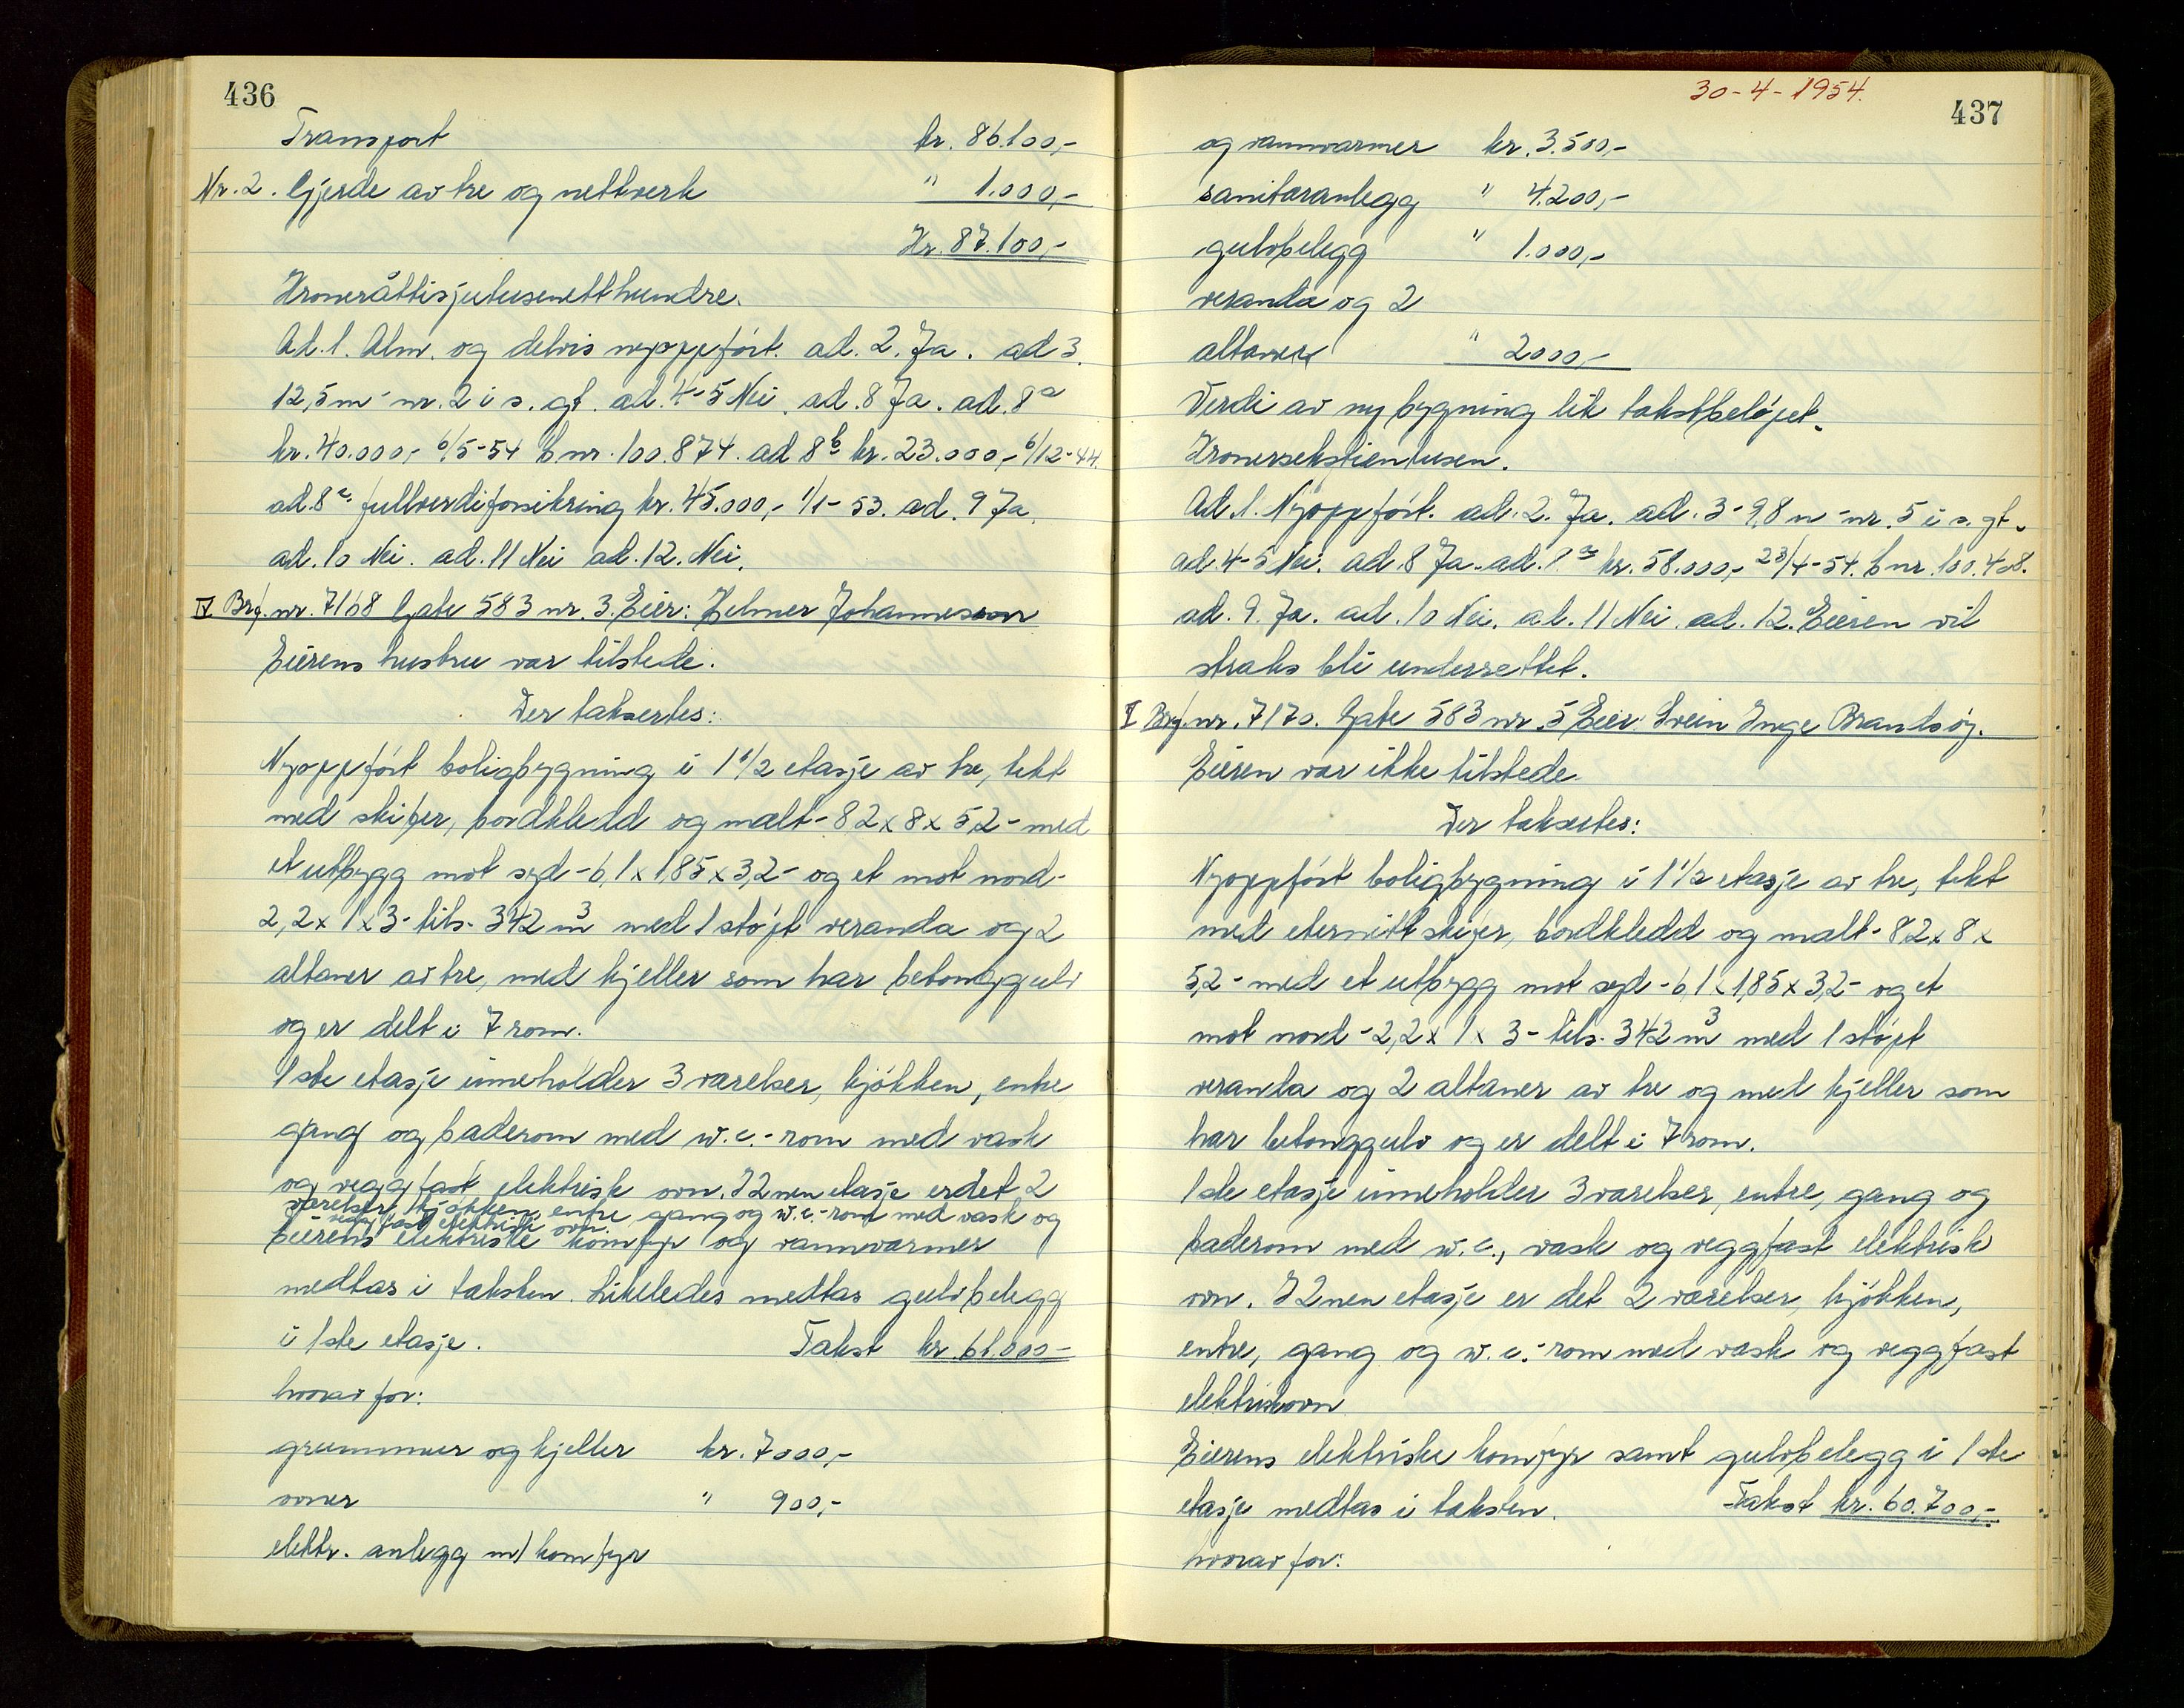 436
Transport kr. 86.100,-
Nr. 2. Gjerde av tre og nettverk " 1.000,-
Kr. 87.100,-
Kroneråttisjutusenetthundre.
Ad. 1. Alm. og delvis nyoppført. ad. 2. Ja. ad 3.
12,5 m - nr. 2 i s. gt. ad. 4-5 Nei. ad. 8 Ja. ad. 8a
kr. 40.000,- 6/5-54 b nr. 100.874. ad 8b kr. 23.000,- 6/12-44.
ad. 8c. fullverdiforsikring kr. 45.000,- 1/1-53. ad. 9 Ja.
ad. 10 Nei. ad. 11 Nei ad. 12. Nei.
IV Brf. nr. 7168 Gate 583 nr. 3. Eier: Helmer Johannesson
Eierens hustru var tilstede.
Der taksertes:
Nyoppført boligbygning i 1 1/2 etasje av tre, tekt
med skifer, bordkledd og malt - 8,2 x 8 x 5,2 - med
et utbygg mot syd - 6,1 x 1,85 x 3,2 - og et mot nord -
2,2 x 1 x 3 - tils. 342 m3 med 1 støpt veranda og 2
altaner av tre, med kjeller som har betonggulv
og er delt i 7 rom.
1ste etasje inneholder 3 værelser, kjøkken, entre
gang og baderom med w.c.- rom med vask
og veggfast elektrisk ovn. I 2nen etasje er det 2
værelser, kjøkken, entre gang og w.c.- rom med vask og
veggfast elektrisk ovn.
Eierens elektriske komfyr og vannvarmer
medtas i taksten. Likeledes medtas gulvbelegg
i 1ste etasje. Takst kr. 61.000-
hvorav for:
grunnmur og kjeller kr. 7000,-
ovner " 900,-
elektr. anlegg m/ komfyr
30-4-1954.
437
og vannvarmer kr. 3.500,-
sanitæranlegg " 4.200,-
gulvbelegg " 1.000,-
veranda og 2
altaner " 2000,-
Verdi av ny bygning lik takstbeløpet.
Kronersekstientusen.
Ad. 1. Nyoppført. ad. 2. Ja. ad. 3 - 9,8 m - nr. 5 i s. gt.
ad. 4-5 Nei. ad. 8 Ja. ad. 8a kr. 58.000,- 23/4-54. b nr. 100.408.
ad. 9. Ja. ad. 10 Nei. ad. 11 Nei. ad. 12. Eieren vil
straks bli underrettet.
V Brf. nr. 7170. Gate 583 nr. 5 Eier: Svein Inge Brandsøy.
Eieren var ikke tilstede
Der takseres:
Nyoppført boligbygning i 1 1/2 etasje av tre, tekt
med eternitt skifer, bordkledd og malt - 8,2 x 8 x
5,2 - med et utbygg mot syd - 6,1 x 1,85 x 3,2 - og et
mot nord - 2,2 x 1 x 3 - tils. 342 m3 med 1 støpt
veranda og 2 altaner av tre og med kjeller som
har betonggulv og er delt i 7 rom.
1ste etasje inneholder 3 værelser, entre, gang og
baderom med w.c., vask og veggfast elektrisk
ovn. I 2nen etasje er det 2 værelser, kjøkken,
entre, gang og w.c.- rom med vask og veggfast
elektriskovn
Eierens elektriske komfyr samt gulvbelegg i 1ste
etasje medtas i taksten. Takst kr. 60.700,-
hvorav for: